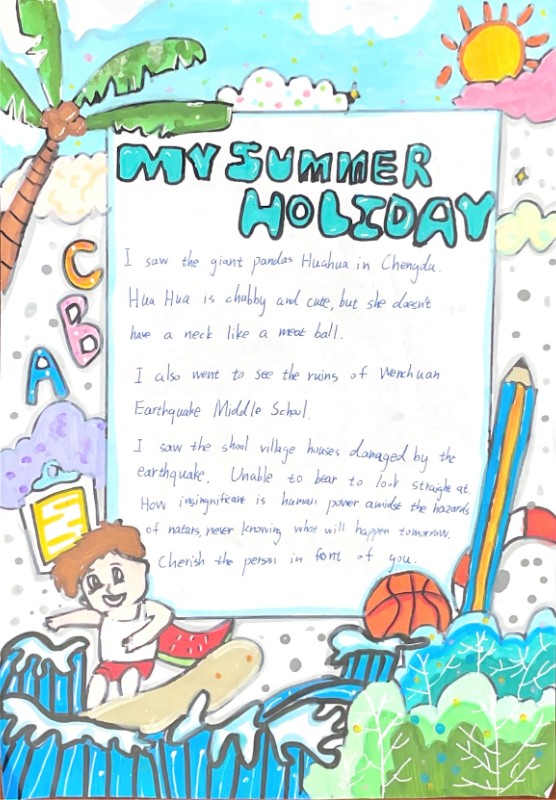 MY SUMMER
HOLIDAY
I saw the giant pandas Huahua in Chengdu.
Hua Hua is chubby and cute, but she doesn't
have a neck like a meat ball.
I also went to see the ruins of Wenchuan
Earthquake Middle School.
I saw the shool village houses damaged by the
earthquake. Unable to bear to look straight at.
How insingnificant is human power amidst the hazards
of naturs, never knowing what will happen tomorrow.
Cherish the person in font of you.
C
B
A